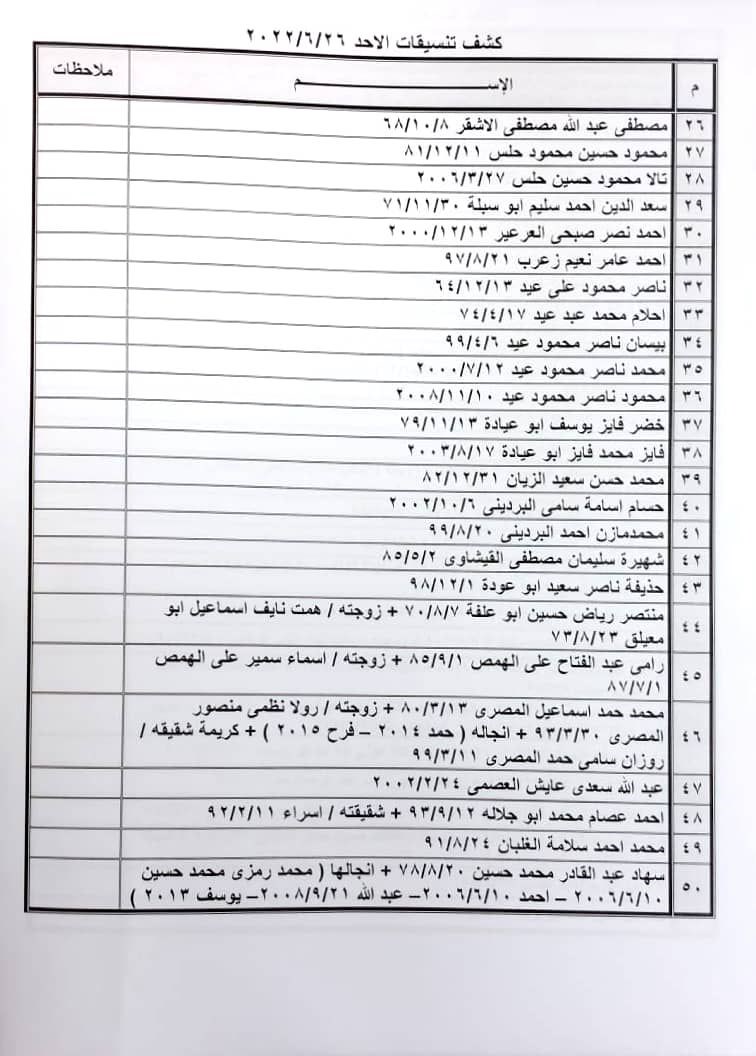 كشف تنسيقات الاحد ٢٠٢٢/٦/٢٦
م الإســـــــــم ملاحظات
٢٦ مصطفى عبد الله مصطفى الاشقر ٦٨/١٠/٨
٢٧ محمود حسين محمود حلس ٨١/١٢/١١
٢٨ تالا محمود حسين حلس ٢٠٠٦/٣/٢٧
٢٩ سعد الدين احمد سليم ابو سبلة ٧١/١١/٣٠
٣٠ احمد نصر صبحى العرعير ٢٠٠٠/١٢/١٣
٣١ احمد عامر نعيم زعرب ٩٧/٨/٢١
٣٢ ناصر محمود على عيد ٦٤/١٢/١٣
٣٣ احلام محمد عبد عيد ٧٤/٤/١٧
٣٤ بيسان ناصر محمود عيد ٩٩/٤/٦
٣٥ محمد ناصر محمود عيد ٢٠٠٠/٧/١٢
٣٦ محمود ناصر محمود عيد ٢٠٠٨/١١/١٠
٣٧ خضر فايز يوسف ابو عيادة ٧٩/١١/١٣
٣٨ فايز محمد فايز ابو عيادة ٢٠٠٣/٨/١٧
٣٩ محمد حسن سعيد الزيان ٨٢/١٢/٣١
٤٠ حسام اسامة سامى البردينى ٢٠٠٢/١٠/٦
٤١ محمدمازن احمد البردينى ٩٩/٨/٢٠
٤٢ شهيرة سليمان مصطفى القيشاوى ٨٥/٥/٢
٤٣ حذيفة ناصر سعيد ابو عودة ٩٨/١٢/١
٤٤ منتصر رياض حسين ابو علفة ٧٠/٨/٧ + زوجته / همت نايف اسماعيل ابو
معيلق ٧٣/٨/٢٣
٤٥ رامى عبد الفتاح على الهمص ٨٥/٩/١ + زوجته / اسماء سمير على الهمص
٨٧/٧/١
محمد حمد اسماعيل المصرى ٨٠/٣/١٣ + زوجته / رولا نظمى منصور
٤٦ المصرى ٩٣/٣/٣٠ + انجاله ( حمد ٢٠١٤ – فرح ٢٠١٥ ) + كريمة شقيقه /
روزان سامى حمد المصرى ٩٩/٣/١١
٤٧ عبد الله سعدى عايش العصمى ٢٠٠٢/٢/٢٤
٤٨ احمد عصام محمد ابو جلاله ٩٣/٩/١٢ + شقيقته / اسراء ٩٢/٢/١١
٤٩ محمد احمد سلامة الغلبان ٩١/٨/٢٤
٥٠ سهاد عبد القادر محمد حسين ٧٨/٨/٢٠ + انجالها ( محمد رمزى محمد حسين
٢٠٠٦/٦/١٠ – احمد ٢٠٠٦/٦/١٠– عبد الله ٢٠٠٨/٩/٢١– يوسف ٢٠١٣ )